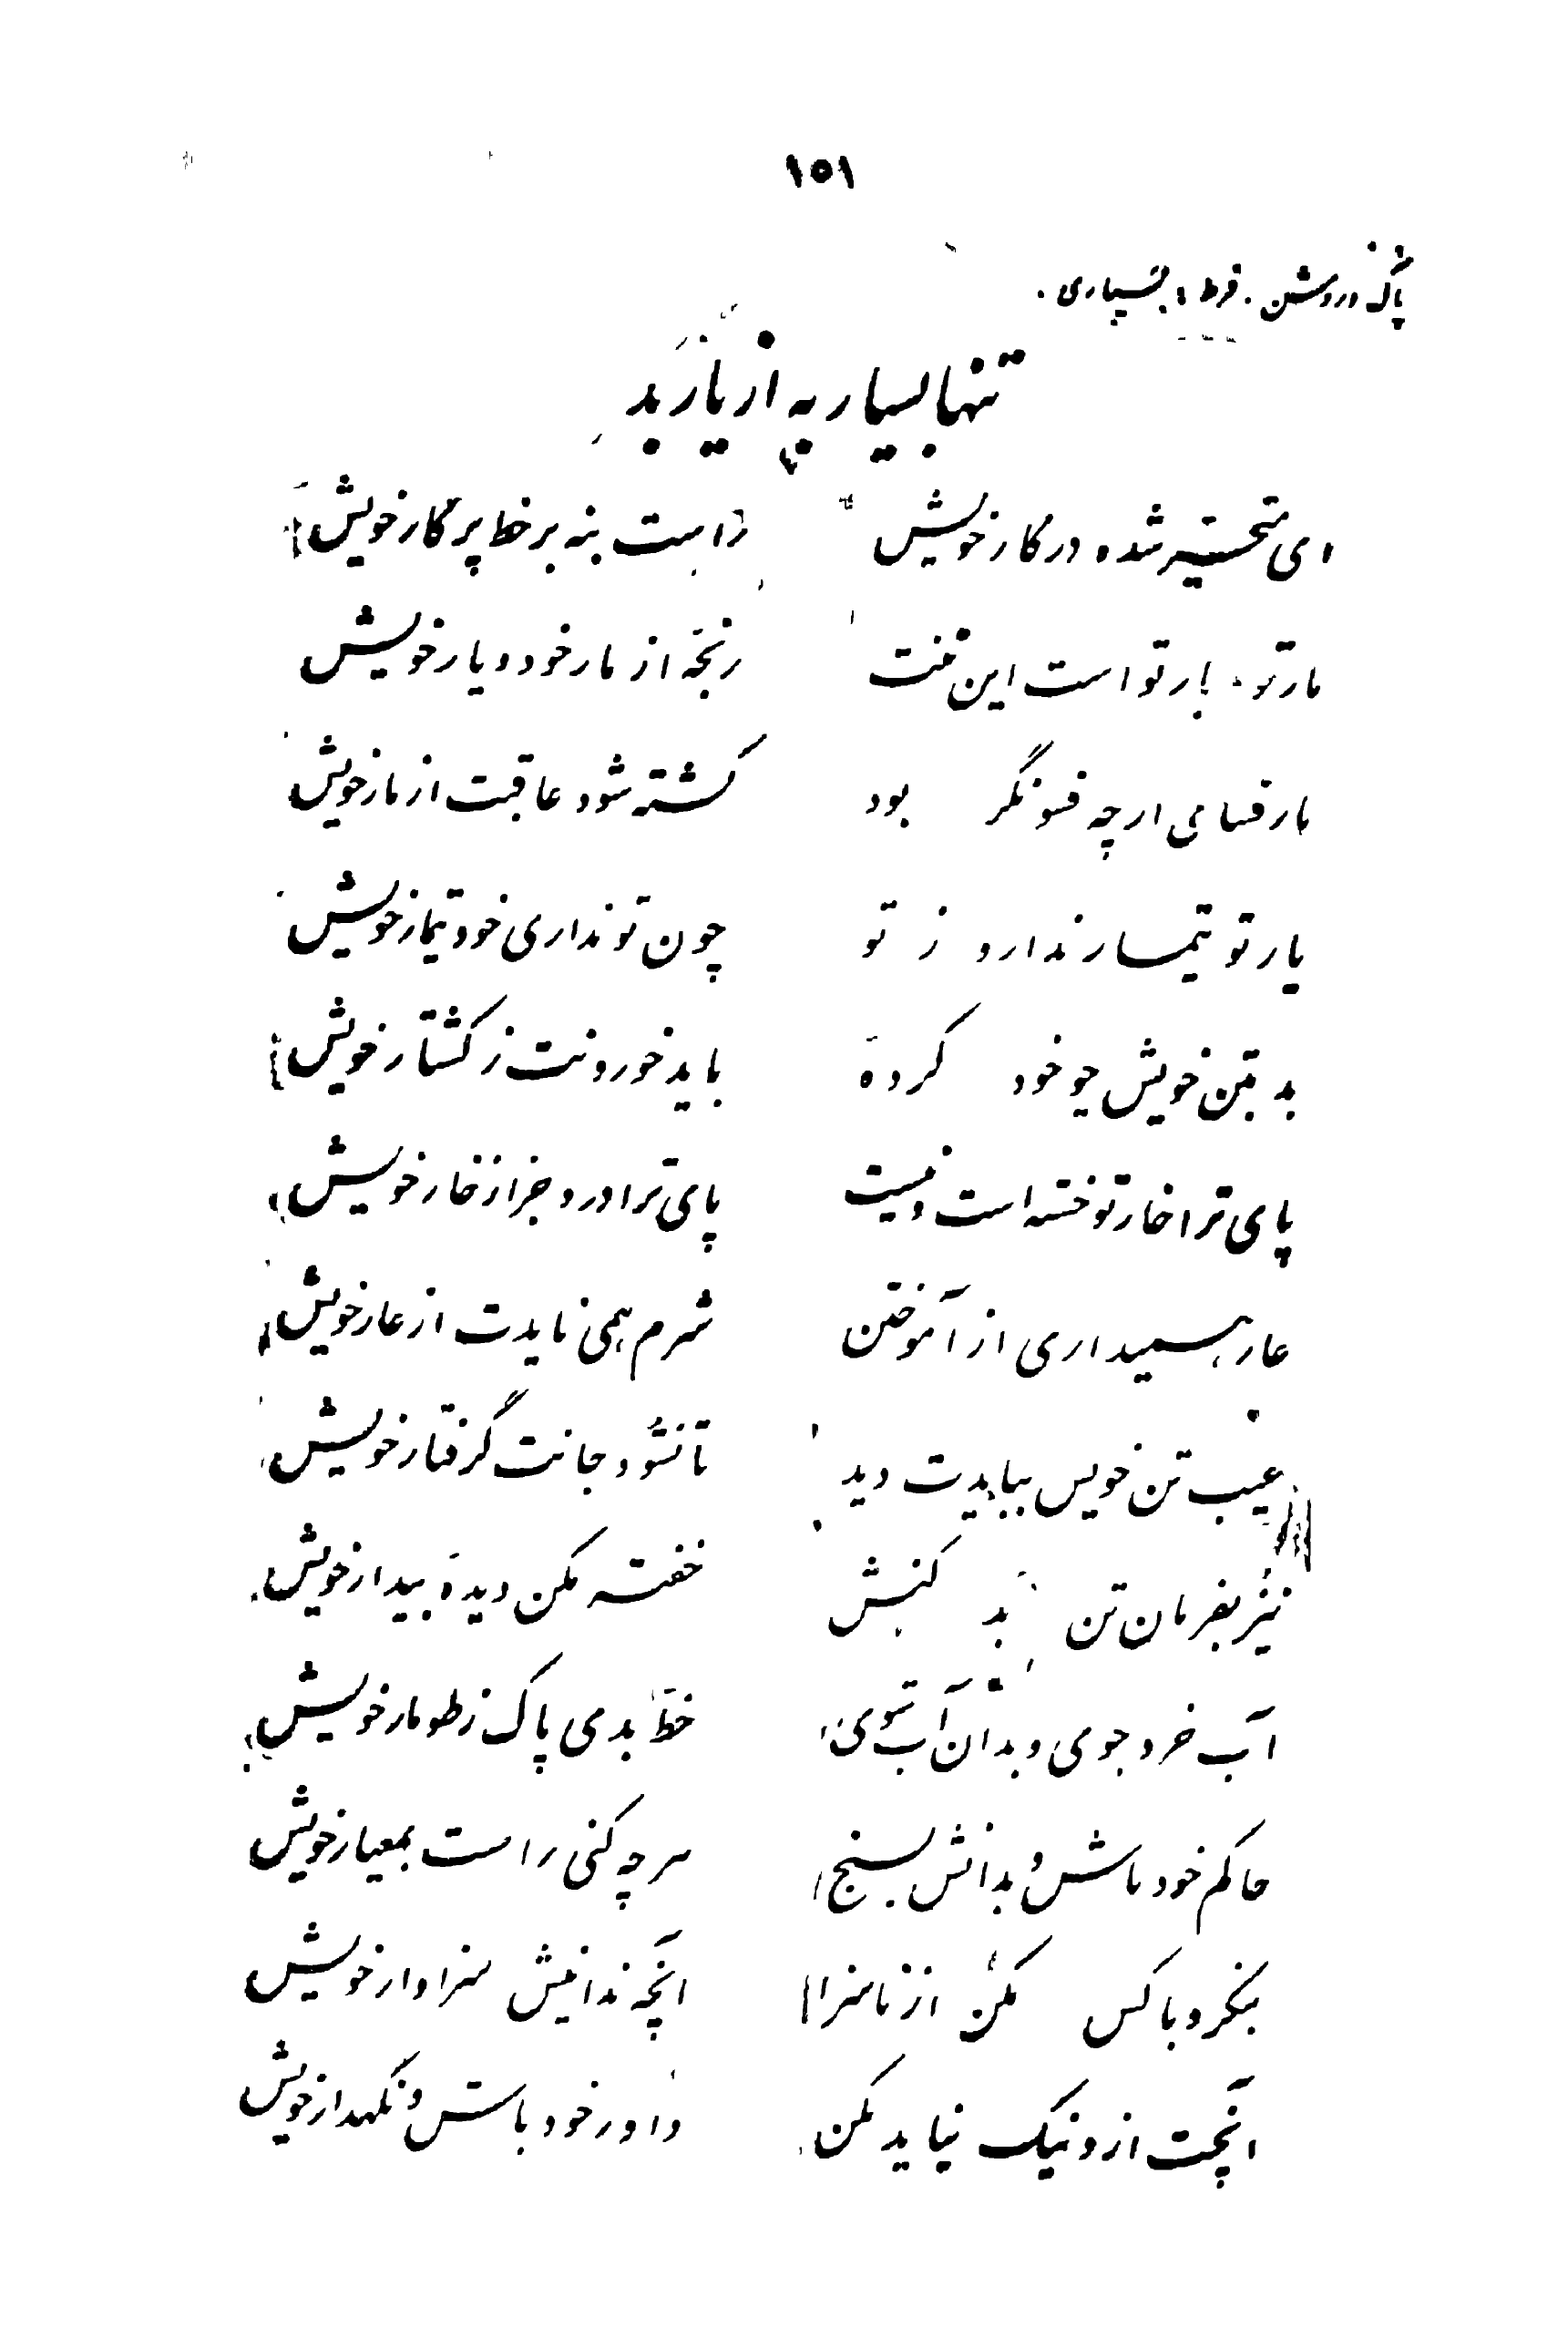 ۱۵۱
پاک و روشن . فرط : بسیاری .
تنها بسیار به از یار بد
ای متحیر شده در کار خویش    راست بنه بر خط پرگار خویش
مار تو و یار تو است این تنت    رنجه از مار خود و یار خویش
مارفسای ارچه فسونگر بود    کشته شود عاقبت از مار خویش
یار تو تیمار ندارد ز تو    چون تو نداری خود تیمار خویش
بد بتن خویش چو خود کردهٔ    باید خوردنت ز کشتار خویش
پای ترا خار تو خسته است و نیست    پای ترا درد جز از خار خویش
عار همیداری از آموختن    شرم همی نایدت از عار خویش
عیب تن خویش ببایدت دید    تا نشود جانت گرفتار خویش
نیز بفرمان تن بد کنش    خفته مکن دیدهٔ بیدار خویش
آب خرد جوی و بدان آب شوی    خط بدی پاک ز طومار خویش
حاکم خود باش و بدانش بسنج    هرچه کنی راست بمعیار خویش
بنگر و با کس مکن از ناسزا    آنچه ندانیش سزاوار خویش
آنچت ازو نیک نیاید مکن    داور خود باش و نگهدار خویش